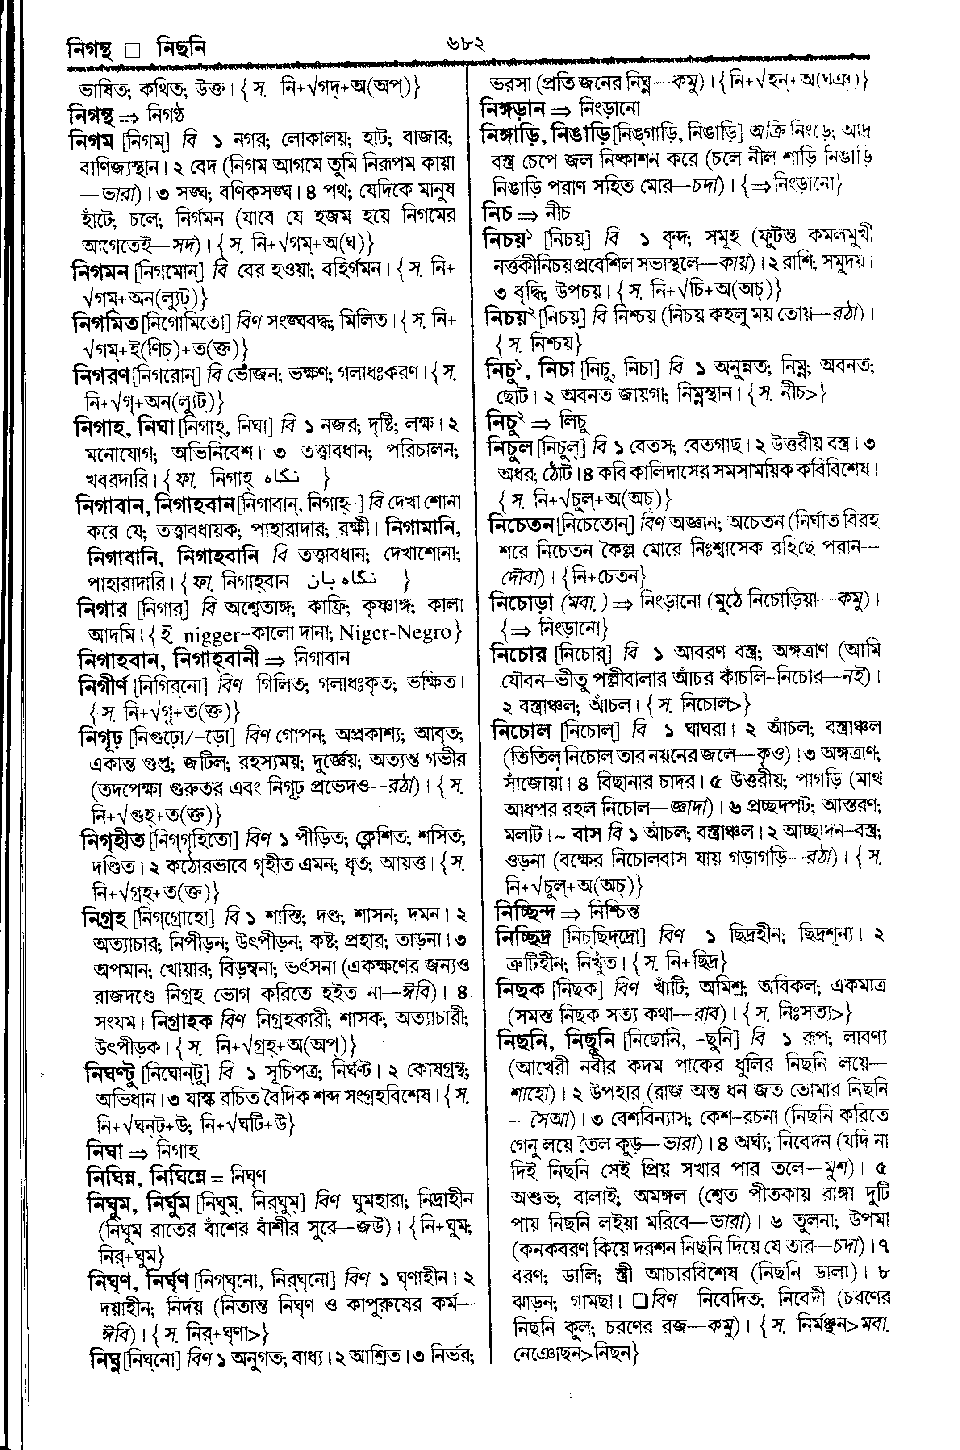 নিগন্থ □ নিছনি
৬৮২
ভাষিত; কথিত; উক্ত। {স. নি+√গদ্+অ(অপ্)}
নিগন্থ ⇒ নিগণ্ঠ
নিগম [নিগম্] বি ১ নগর; লোকালয়; হাট; বাজার;
বাণিজ্যস্থান। ২ বেদ (নিগম আগমে তুমি নিরূপম কায়া
—ভারা)। ৩ সঙ্ঘ; বণিকসঙ্ঘ। ৪ পথ; যেদিকে মানুষ
হাঁটে; চলে; নির্গমন (যাবে যে হজম হয়ে নিগমের
আগেতেই—সদ)। {স. নি+√গম্+অ(ঘ)}
নিগমন [নিগমোন্] বি বের হওয়া; বহির্গমন। {স. নি+
√গম্+অন(ল্যুট্)}
নিগমিত [নিগোমিতো] বিণ সংঘবদ্ধ; মিলিত। {স. নি+
√গম্+ই(ণিচ্)+ত(ক্ত)}
নিগরণ [নিগরোন্] বি ভোজন; ভক্ষণ; গলাধঃকরণ। {স.
নি+√গৃ+অন(ল্যুট্)}
নিগাহ, নিঘা [নিগাহ্, নিঘা] বি ১ নজর; দৃষ্টি; লক্ষ। ২
মনোযোগ; অভিনিবেশ। ৩ তত্ত্বাবধান; পরিচালন;
খবরদারি। {ফা. নিগাহ্ نگاه }
নিগাবান, নিগাহবান [নিগাবান্, নিগাহ্-] বি দেখা শোনা
করে যে; তত্ত্বাবধায়ক; পাহারাদার; রক্ষী। নিগামানি,
নিগাবানি, নিগাহবানি বি তত্ত্বাবধান; দেখাশোনা;
পাহারাদারি। {ফা. নিগাহ্‌বান نگاه بان }
নিগার [নিগার্] বি অশ্বেতাঙ্গ; কাফ্রি; কৃষ্ণাঙ্গ; কালা
আদমি। {ই nigger-কালো দানা; Niger-Negro}
নিগাহবান, নিগাহবানী ⇒ নিগাবান
নিগীর্ণ [নিগির্‌নো] বিণ গিলিত; গলাধঃকৃত; ভক্ষিত।
{স. নি+√গৃ+ত(ক্ত)}
নিগূঢ় [নিগুঢ়ো/-ড়ো] বিণ গোপন; অপ্রকাশ্য; আবৃত;
একান্ত গুপ্ত; জটিল; রহস্যময়; দুর্জ্ঞেয়; অত্যন্ত গভীর
(তদপেক্ষা গুরুতর এবং নিগূঢ় প্রভেদও—রঠা)। {স.
নি+√গুহ্+ত(ক্ত)}
নিগৃহীত [নিগ্‌গৃহিতো] বিণ ১ পীড়িত; ক্লেশিত; শসিত;
দণ্ডিত। ২ কঠোরভাবে গৃহীত এমন; ধৃত; আয়ত্ত। {স.
নি+√গ্রহ্+ত(ক্ত)}
নিগ্রহ [নিগ্‌গ্রোহো] বি ১ শাস্তি; দণ্ড; শাসন; দমন। ২
অত্যাচার; নিপীড়ন; উৎপীড়ন; কষ্ট; প্রহার; তাড়না। ৩
অপমান; খোয়ার; বিড়ম্বনা; ভর্ৎসনা (একক্ষণের জন্যও
রাজদণ্ডে নিগ্রহ ভোগ করিতে হইত না—ঈবি)। ৪
সংযম। নিগ্রাহক বিণ নিগ্রহকারী; শাসক; অত্যাচারী;
উৎপীড়ক। {স. নি+√গ্রহ্+অ(অপ্)}
নিঘণ্টু [নিঘোন্‌টু] বি ১ সূচিপত্র; নির্ঘণ্ট। ২ কোষগ্রন্থ;
অভিধান। ৩ যাস্ক রচিত বৈদিক শব্দ সংগ্রহবিশেষ। {স.
নি+√ঘন্ট্+উ; নি+√ঘটি+উ}
নিঘা ⇒ নিগাহ
নিঘিন্ন, নিঘিন্নে = নিঘৃণ
নিঘুম, নির্ঘুম [নিঘুম্, নির্‌ঘুম্] বিণ ঘুমহারা; নিদ্রাহীন
(নিঘুম রাতের বাঁশের বাঁশীর সুরে—জউ)। {নি+ঘুম;
নির্+ঘুম}
নিঘৃণ, নির্ঘৃণ [নিগ্‌ঘৃনো, নির্‌ঘৃনো] বিণ ১ ঘৃণাহীন। ২
দয়াহীন; নির্দয় (নিতান্ত নিঘৃণ ও কাপুরুষের কর্ম—
ঈবি)। {স. নির্+ঘৃণা>}
নিঘ্ন [নিঘ্‌নো] বিণ ১ অনুগত; বাধ্য। ২ আশ্রিত। ৩ নির্ভর;
ভরসা (প্রতি জনের নিঘ্ন—কমু)। {নি+√হন্+অ(ঘঞ্)}
নিঙ্গড়ান ⇒ নিংড়ানো
নিঙ্গাড়ি, নিঙাড়ি [নিঙ্‌গাড়ি, নিঙাড়ি] অক্রি নিংড়ে; আর্দ্র
বস্ত্র চেপে জল নিষ্কাশন করে (চলে নীল শাড়ি নিঙাড়ি
নিঙাড়ি পরাণ সহিত মোর—চদা)। {⇒ নিংড়ানো}
নিচ ⇒ নীচ
নিচয়১ [নিচয়] বি ১ বৃন্দ; সমূহ (ফুটন্ত কমলমুখী
নর্ত্তকীনিচয় প্রবেশিল সভাস্থলে—কায়)। ২ রাশি; সমুদয়।
৩ বৃদ্ধি; উপচয়। {স. নি+√চি+অ(অচ্)}
নিচয়২ [নিচয়] বি নিশ্চয় (নিচয় কহলু ময় তোয়—রঠা)।
{স. নিশ্চয়}
নিচু১, নিচা [নিচু, নিচা] বি ১ অনুন্নত; নিম্ন; অবনত;
ছোট। ২ অবনত জায়গা; নিম্নস্থান। {স. নীচ>}
নিচু২ ⇒ লিচু
নিচুল [নিচুল্] বি ১ বেতস; বেতগাছ। ২ উত্তরীয় বস্ত্র। ৩
অধর; ঠোঁট। ৪ কবি কালিদাসের সমসাময়িক কবিবিশেষ।
{স. নি+√চুল্+অ(অচ্)}
নিচেতন [নিচেতোন্] বিণ অজ্ঞান; অচেতন (নির্ঘাত বিরহ
শরে নিচেতন কৈল্ল মোরে নিঃশ্বাসেক রহিছে পরান—
দৌবা)। {নি+চেতন}
নিচোড়া (মবা.) ⇒ নিংড়ানো (মুঠে নিচোড়িয়া—কমু)।
{⇒ নিংড়ানো}
নিচোর [নিচোর্] বি ১ আবরণ বস্ত্র; অঙ্গত্রাণ (আমি
যৌবন-ভীতু পল্লীবালার আঁচর কাঁচলি-নিচোর—নই)।
২ বস্ত্রাঞ্চল; আঁচল। {স. নিচোল>}
নিচোল [নিচোল্] বি ১ ঘাঘরা। ২ আঁচল; বস্ত্রাঞ্চল
(তিতিল নিচোল তার নয়নের জলে—কৃও)। ৩ অঙ্গত্রাণ;
সাঁজোয়া। ৪ বিছানার চাদর। ৫ উত্তরীয়; পাগড়ি (মাথ
আধপর রহল নিচোল—জ্ঞাদা)। ৬ প্রচ্ছদপট; আস্তরণ;
মলাট। ~ বাস বি ১ আঁচল; বস্ত্রাঞ্চল। ২ আচ্ছাদন-বস্ত্র;
ওড়না (বক্ষের নিচোলবাস যায় গড়াগড়ি—রঠা)। {স.
নি+√চুল্+অ(অচ্)}
নিচ্ছিন্দ ⇒ নিশ্চিন্ত
নিচ্ছিদ্র [নিচ্‌ছিদ্‌দ্রো] বিণ ১ ছিদ্রহীন; ছিদ্রশূন্য। ২
ত্রুটিহীন; নিখুঁত। {স. নি+ছিদ্র}
নিছক [নিছক্] বিণ খাঁটি; অমিশ্র; অবিকল; একমাত্র
(সমস্ত নিছক সত্য কথা—রাব)। {স. নিঃসত্য>}
নিছনি, নিছুনি [নিছোনি, -ছুনি] বি ১ রূপ; লাবণ্য
(আখেরী নবীর কদম পাকের ধুলির নিছনি লয়ে—
শাহো)। ২ উপহার (রাজ্য অন্ত ধন জত তোমার নিছনি
—সৈআ)। ৩ বেশবিন্যাস; কেশ-রচনা (নিছনি করিতে
গেনু লয়ে তৈল কূড়—ভারা)। ৪ অর্ঘ্য; নিবেদন (যদি না
দিই নিছনি সেই প্রিয় সখার পার তলে—মুশ)। ৫
অশুভ; বালাই; অমঙ্গল (শ্বেত পীতকায় রাঙ্গা দুটি
পায় নিছনি লইয়া মরিবে—ভারা)। ৬ তুলনা; উপমা
(কনকবরণ কিয়ে দরশন নিছনি দিয়ে যে তার—চদা)। ৭
বরণ; ডালি; স্ত্রী আচারবিশেষ (নিছনি ডালা)। ৮
ঝাড়ন; গামছা। □ বিণ নিবেদিত; নিবেদী (চরণের
নিছনি কুল; চরণের রজ—কমু)। {স. নির্মঞ্ছন> মবা.
নেঞোছন>নিছন}